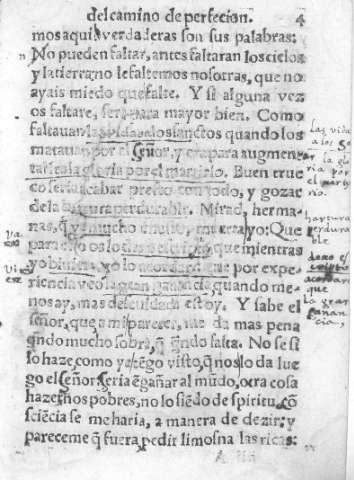 del camino de perfecion. 4
mos aqui, verdaderas son sus palabras:
No pueden faltar, antes faltaran los cielos
y la tierra, no le faltemos nosotras, que no
ayais miedo que falte. Y si alguna vez
os faltare, sera para mayor bien. Como
faltauan las vidas a los sanctos quando los
matauan por el Señor, y era para augmen
tarles la gloria por el martirio. Buen true
co seria acabar presto con todo, y gozar
de la hartura perdurable. Mirad, herma-
nas, q̃ va mucho en muerta yo: Que
para esto os lo dexo escripto que mientras
yo biuiere, yo lo acordaré que por expe-
riencia veo la gran ganancia quando me-
nos ay, mas descuidada estoy. Y sabe el
señor, que a mi parecer, me da mas pena
quãdo mucho sobra, q̃ quãdo falta. No se si
lo haze, como ya tẽgo visto, q̃ nos lo da lue
go el Señor. Seria ẽgañar al mũdo, otra cosa
hazernos pobres, no lo siẽdo de spiritu, cõ
sciẽcia se me haria, a manera de dezir: y
pareceme q̃ fuera pedir limosna las ricas:
las vidas
a los Sᵒˢ
la glo
ria por el
marty
rio.
hartura
perdura
ble
va
dexo el
que
la gran
ganan
cia,